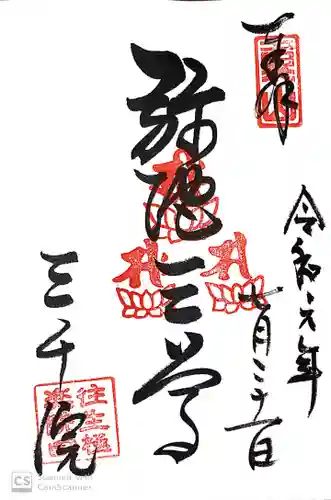 奉拝
令和六年
七月二十一日
弥陀三尊
三千院
往生極楽院
CS Scanned with
CamScanner